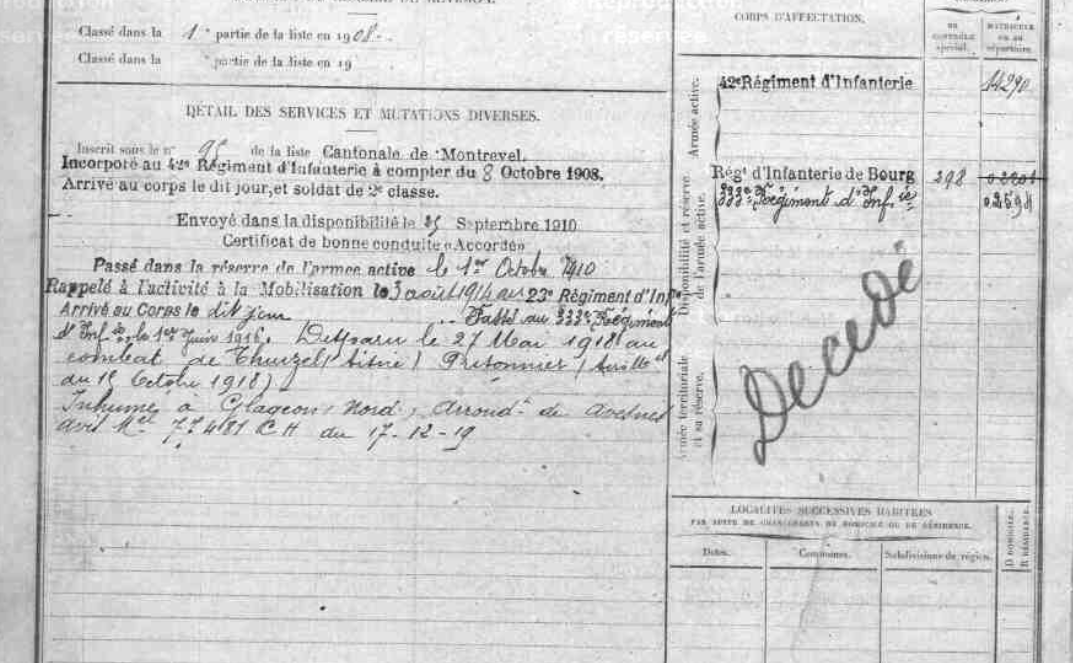 Classé dans la 1e partie de la liste en 1908.
Classé dans la e partie de la liste en 19
DÉTAIL DES SERVICES ET MUTATIONS DIVERSES.
Inscrit sous le n° 95 de la liste Cantonale de Montrevel.
Incorporé au 42e Régiment d'Infanterie à compter du 8 Octobre 1908.
Arrivé au corps le dit jour, et soldat de 2e classe.
Envoyé dans la disponibilité le 25 Septembre 1910
Certificat de bonne conduite «Accordé»
Passé dans la réserve de l'armée active le 1er Octobre 1910
Rappelé à l'activité à la Mobilisation le 3 août 1914 au 23e Régiment d'Infie
Arrivé au Corps le dit jour Passé au 333e Régiment
d'Infie le 1er Juin 1916. Disparu le 27 Mai 1918 au
combat de Prisonnier
du 15 Octobre 1918)
Inhumé à Glageon, Nord, Arrondt de Avesnes
avis Mel 77481 C H du 17-12-19
CORPS D'AFFECTATION.
NU
CONTRÔLE
spécial.
MATRICULE
ou au
répertoire.
Armée active.
42e Régiment d'Infanterie 14290
Disponibilité et réserve
de l'armée active.
Régt d'Infanterie de Bourg 298
333e Régiment d'Infie 02598
Armée territoriale
et sa réserve.
Décédé
LOCALITÉS SUCCESSIVES HABITÉES
PAR SUITE DE CHANGEMENTS DE DOMICILE OU DE RÉSIDENCE.
Dates. Communes. Subdivisions de région.
D DOMICILE.
R RÉSIDENCE.